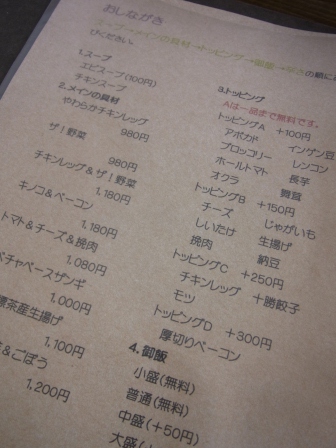 おしながき
スープ→メインの具材→トッピング→御飯→辛さの順にお
びください。
1.スープ
エビスープ(100円)
チキンスープ
2.メインの具材
やわらかチキンレッグ
980円
ザ!野菜
980円
チキンレッグ&ザ!野菜
1,180円
キノコ&ベーコン
1,180円
トマト&チーズ&挽肉
1,080円
ペチャベースザンギ
1,000円
標茶産生揚げ
1,100円
&ごぼう
1,200円
3.トッピング
Aは一品まで無料です。
トッピングA +100円
アボカド インゲン豆
ブロッコリー レンコン
ホールトマト 長芋
オクラ 舞茸
トッピングB +150円
チーズ じゃがいも
しいたけ 生揚げ
挽肉 納豆
トッピングC +250円
チキンレッグ 十勝餃子
モツ
トッピングD +300円
厚切りベーコン
4.御飯
小盛(無料)
普通(無料)
中盛(+50円)
大盛(+